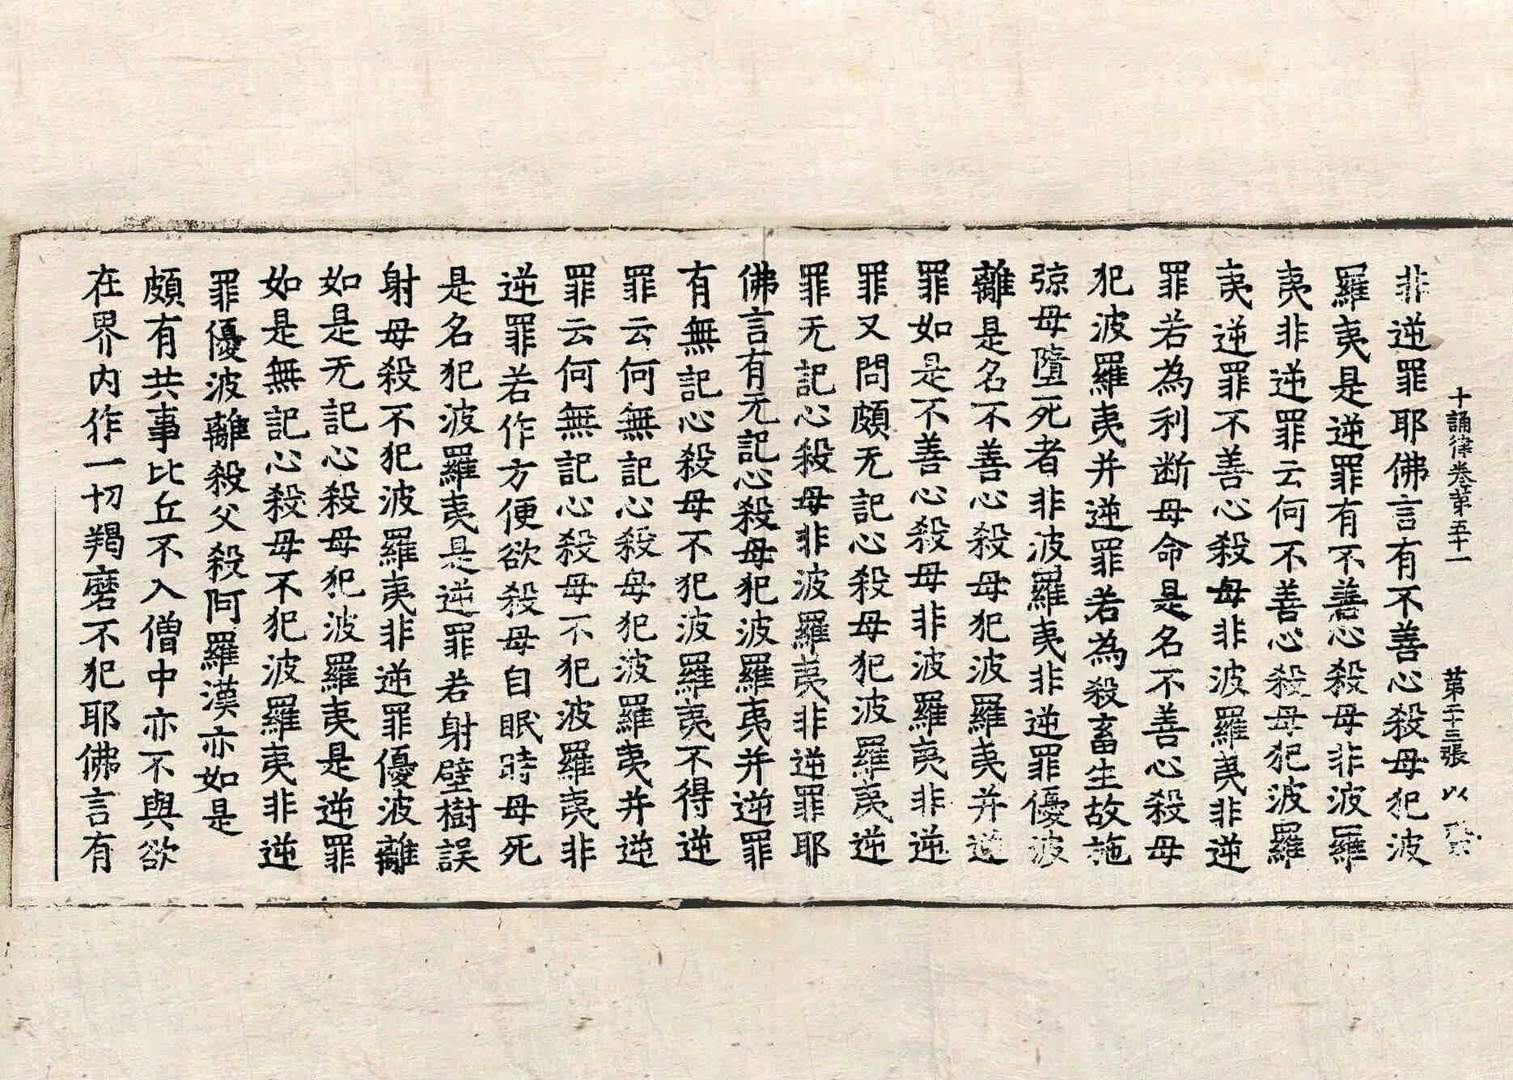 十誦律卷第五十一 第二十三張 以
非逆罪耶佛言有不善心殺母犯波
羅夷是逆罪有不善心殺母非波羅
夷非逆罪云何不善心殺母犯波羅
夷逆罪不善心殺母非波羅夷非逆
罪若為利斷母命是名不善心殺母
犯波羅夷并逆罪若為殺畜生故施
弶母墮死者非波羅夷非逆罪優波
離是名不善心殺母犯波羅夷并逆
罪如是不善心殺母非波羅夷非逆
罪又問頗无記心殺母犯波羅夷逆
罪无記心殺母非波羅夷非逆罪耶
佛言有无記心殺母犯波羅夷并逆罪
有無記心殺母不犯波羅夷不得逆
罪云何無記心殺母犯波羅夷并逆
罪云何無記心殺母不犯波羅夷非
逆罪若作方便欲殺母自眠時母死
是名犯波羅夷是逆罪若射壁樹誤
射母殺不犯波羅夷非逆罪優波離
如是无記心殺母犯波羅夷是逆罪
如是無記心殺母不犯波羅夷非逆
罪優波離殺父殺阿羅漢亦如是
頗有共事比丘不入僧中亦不與欲
在界内作一切羯磨不犯耶佛言有